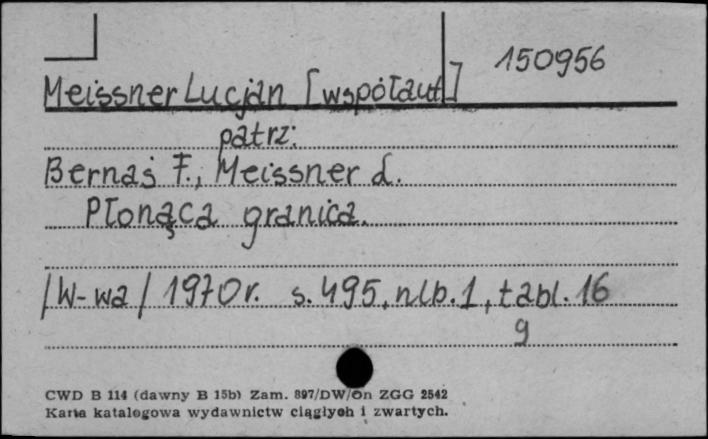 150956
Meissner Lucjan [współaut.]
patrz:
Bernaś F., Meissner L.
Płonąca granica.
/W-wa/ 1970r. s. 495, nlb. 1, tabl. 16
g
CWD B 114 (dawny B 15b) Zam. 897/DW/On ZGG 2542
Karta katalogowa wydawnictw ciągłych i zwartych.